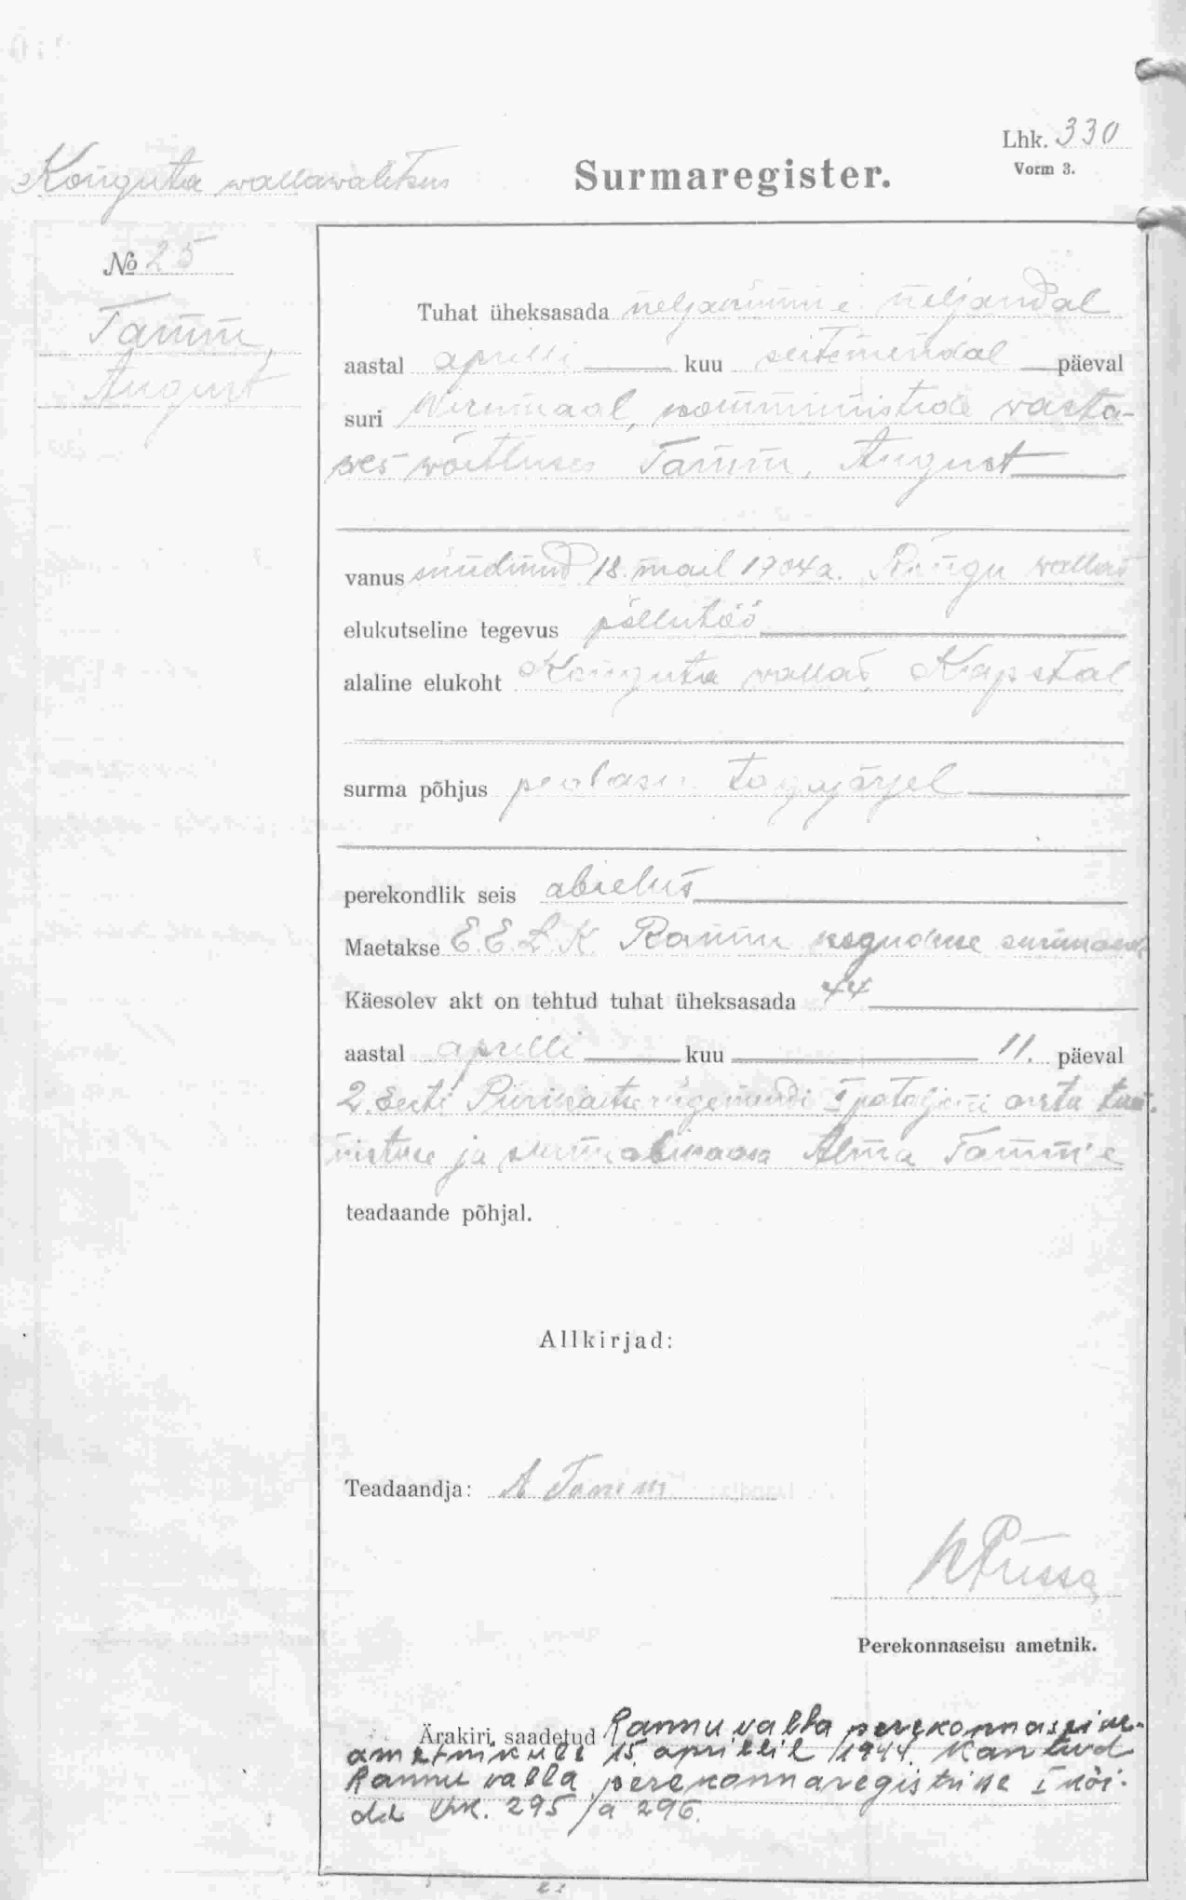 Lhk. 330
Konguta wallawalitsus
Surmaregister.
Vorm 3.
№ 25
Tamm,
August
Tuhat üheksasada neljakümne neljandal
aastal aprilli kuu seitsmendal päeval
suri Wirumaal, kommunistide wasta-
ses wõitluses Tamm, August
vanus sündinud 18. mail 1904 a. Rõngu wallas
elukutseline tegevus põllutöö
alaline elukoht Konguta wallas, Kapstal
surma põhjus tagajärjel
perekondlik seis abielus
Maetakse E.E.L.K. Rannu koguduse surnuaed
Käesolev akt on tehtud tuhat üheksasada 44
aastal aprilli kuu 11. päeval
2. Eesti Piirikaitse rügemendi I pataljoni arsti tun-
nistuse ja surnu abikaasa Alma Tamm'e
teadaande põhjal.
Allkirjad:
Teadaandja: A Tamm
Perekonnaseisu ametnik.
Ärakiri saadetud Rannu valla perekonnaseisu-
ametnikule 15. aprillil 1944. Kantud
Rannu valla perekonnaregistrisse I köi-
de lhk. 295 ja 296.